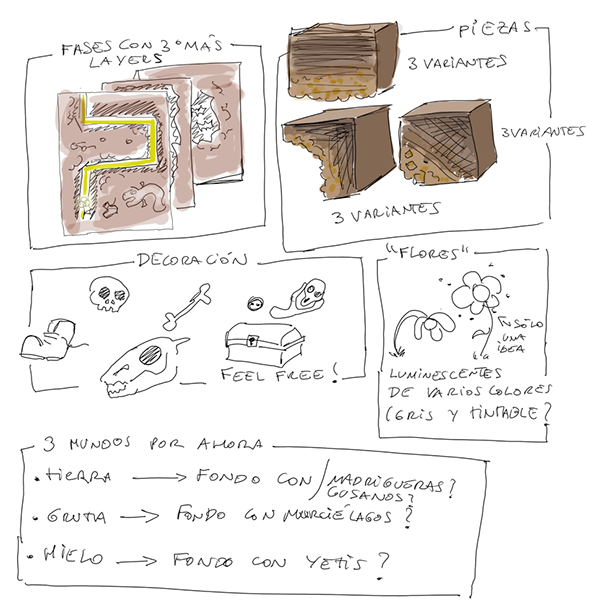 FASES CON 3 O MÁS
LAYERS
PIEZAS
3 VARIANTES
3 VARIANTES
3 VARIANTES
DECORACIÓN
FEEL FREE!
"FLORES"
SÓLO
UNA
IDEA
LUMINISCENTES
DE VARIOS COLORES
(GRIS Y TINTABLE?
3 MUNDOS POR AHORA
• TIERRA → FONDO CON / MADRIGUERAS?
GUSANOS?
• GRUTA → FONDO CON MURCIÉLAGOS?
• HIELO → FONDO CON YETIS?